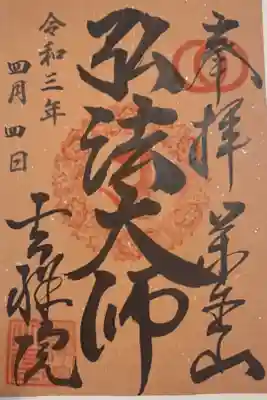 奉拝 萬金山
弘法大師
令和三年
四月四日
吉祥院